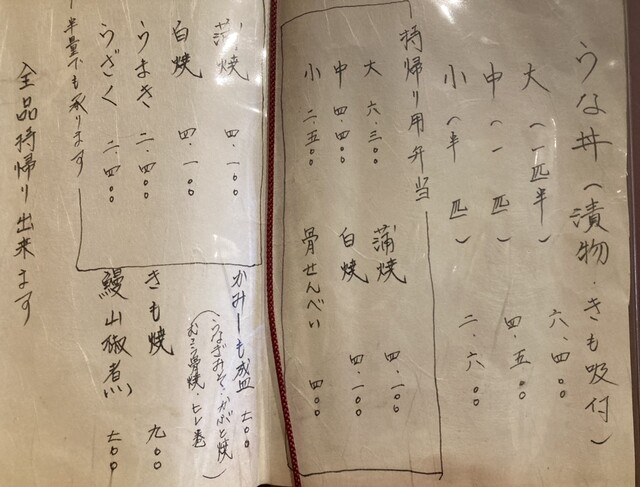 うな丼(漬物・きも吸付)
大(一匹半) 六.四〇〇
中(一匹) 四.五〇〇
小(半匹) 二.六〇〇
持帰り用弁当
大 六.三〇〇
中 四.四〇〇
小 二.五〇〇
蒲焼 四.一〇〇
白焼 四.一〇〇
骨せんべい 四〇〇
蒲焼 四.一〇〇
白焼 四.一〇〇
うまき 二.四〇〇
うざく 二.四〇〇
半量でも承ります
かみーも盛 七〇〇
(うなぎみそ・かぶと焼
むつう骨焼・ヒレ巻)
きも焼 九〇〇
鰻山椒煮 七〇〇
全品持帰り出来ます